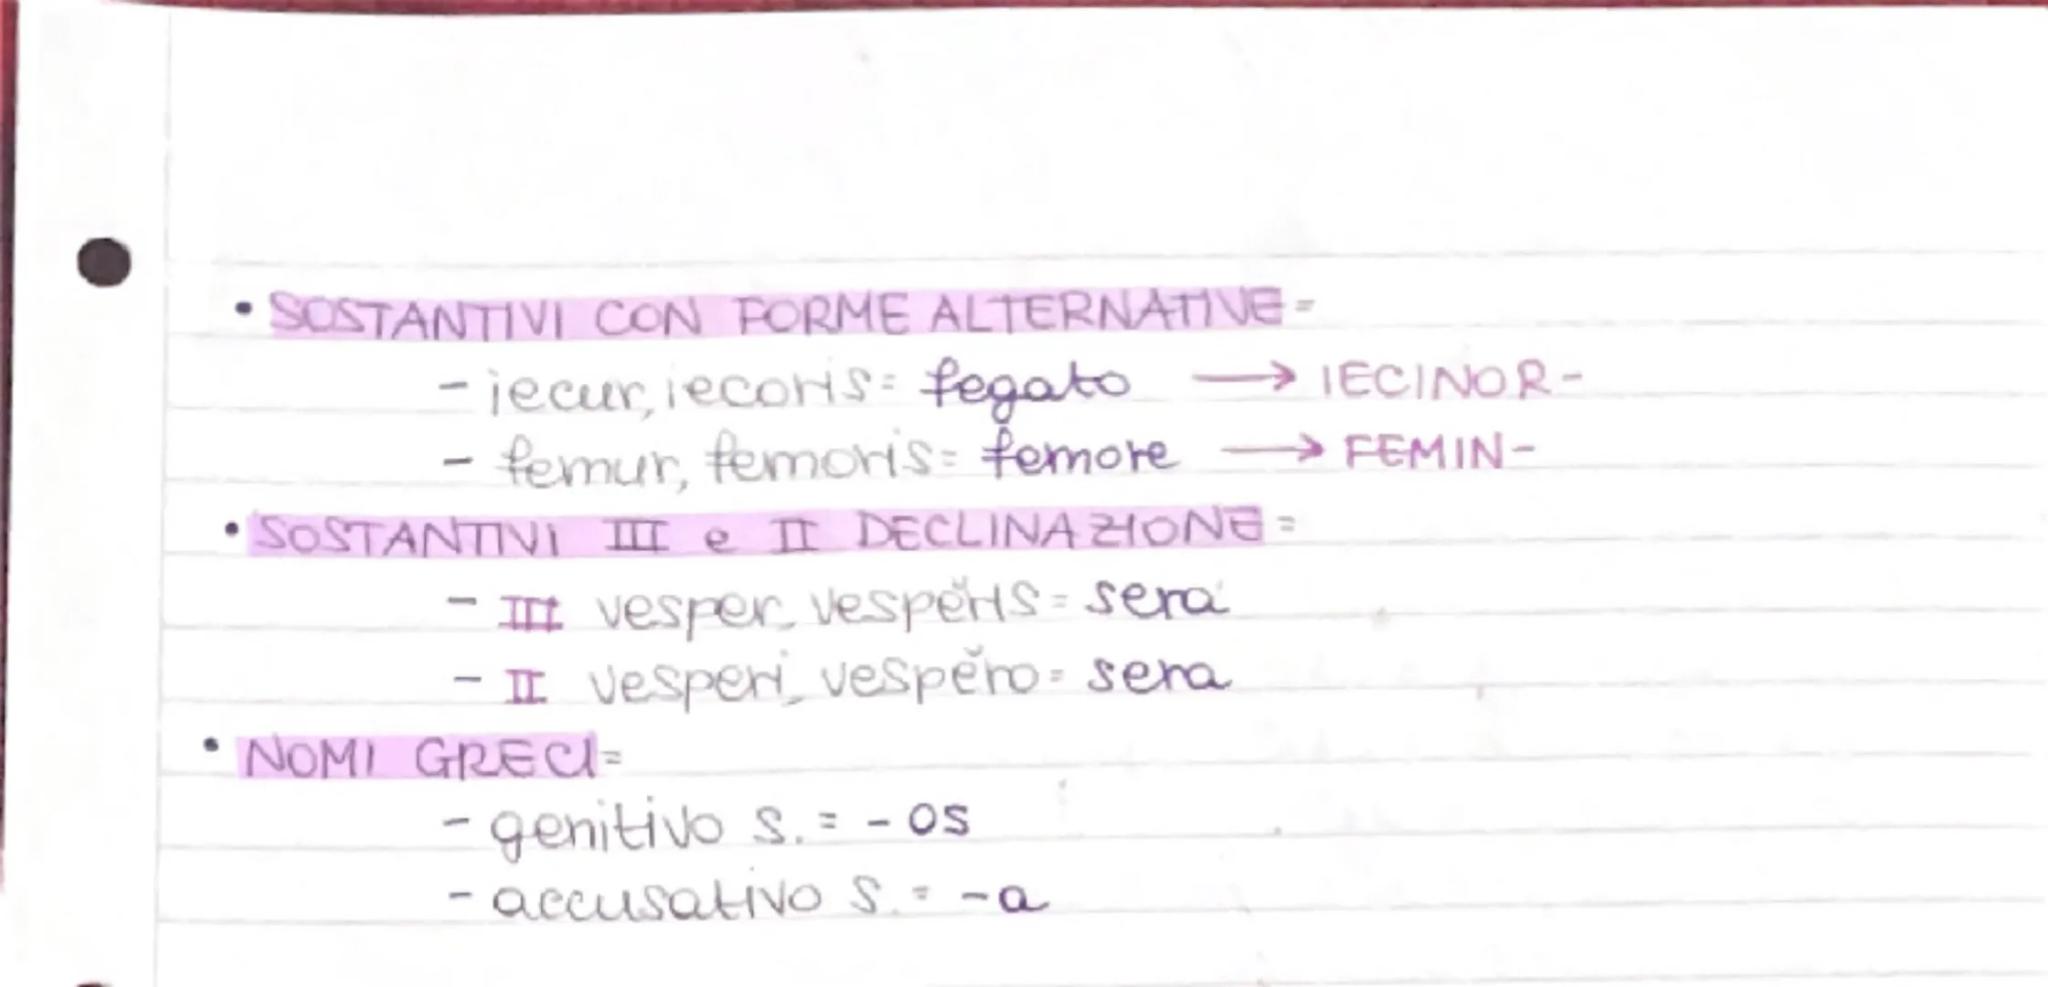 • SOSTANTIVI CON FORME ALTERNATIVE=
- iecur, iecoris= fegato → IECINOR-
- femur, femoris= femore → FEMIN-
• SOSTANTIVI III e II DECLINAZIONE=
- III vesper, vespĕris= sera
- II vesperi, vespĕro= sera
• NOMI GRECI=
- genitivo s.= -os
- accusativo s.= -a